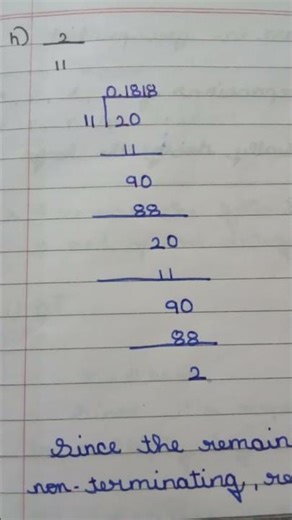 h) 2
11
0.1818
11 20
11
90
88
20
11
90
88
2
Since the remain
non-terminating, re